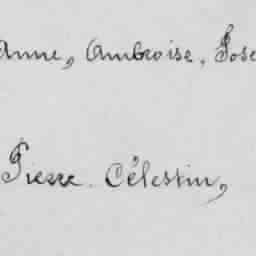 Anne, Ambroise, Jose
Pierre Célestin,